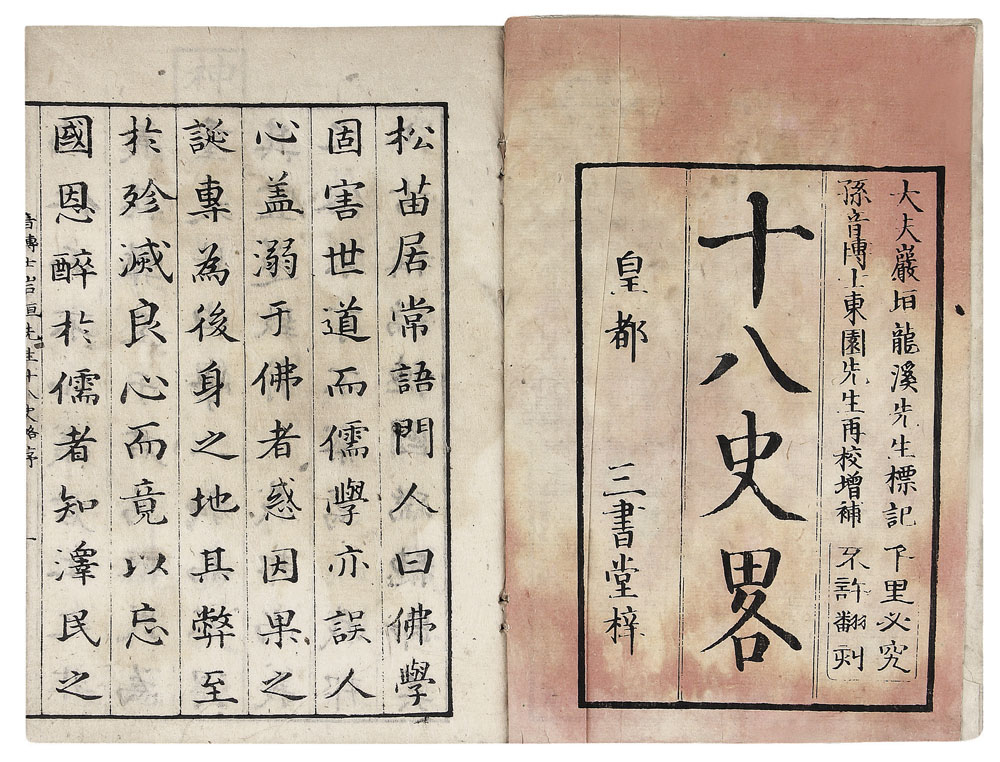 大夫巖垣龍溪先生標記
孫音博士東園先生再校增補
千里必究
不許翻刻
十八史畧
皇都 三書堂梓
松苗居常語門人曰佛學
固害世道而儒學亦誤人
心盖溺于佛者惑因果之
誕專為後身之地其弊至
於殄滅良心而竟以忘
國恩醉於儒者知澤民之
音博士岩垣先生十八史略序 一